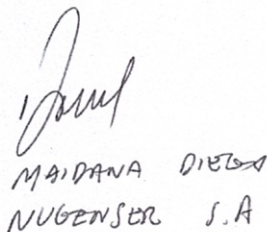 MAIDANA DIEGO
NUGENSER S.A